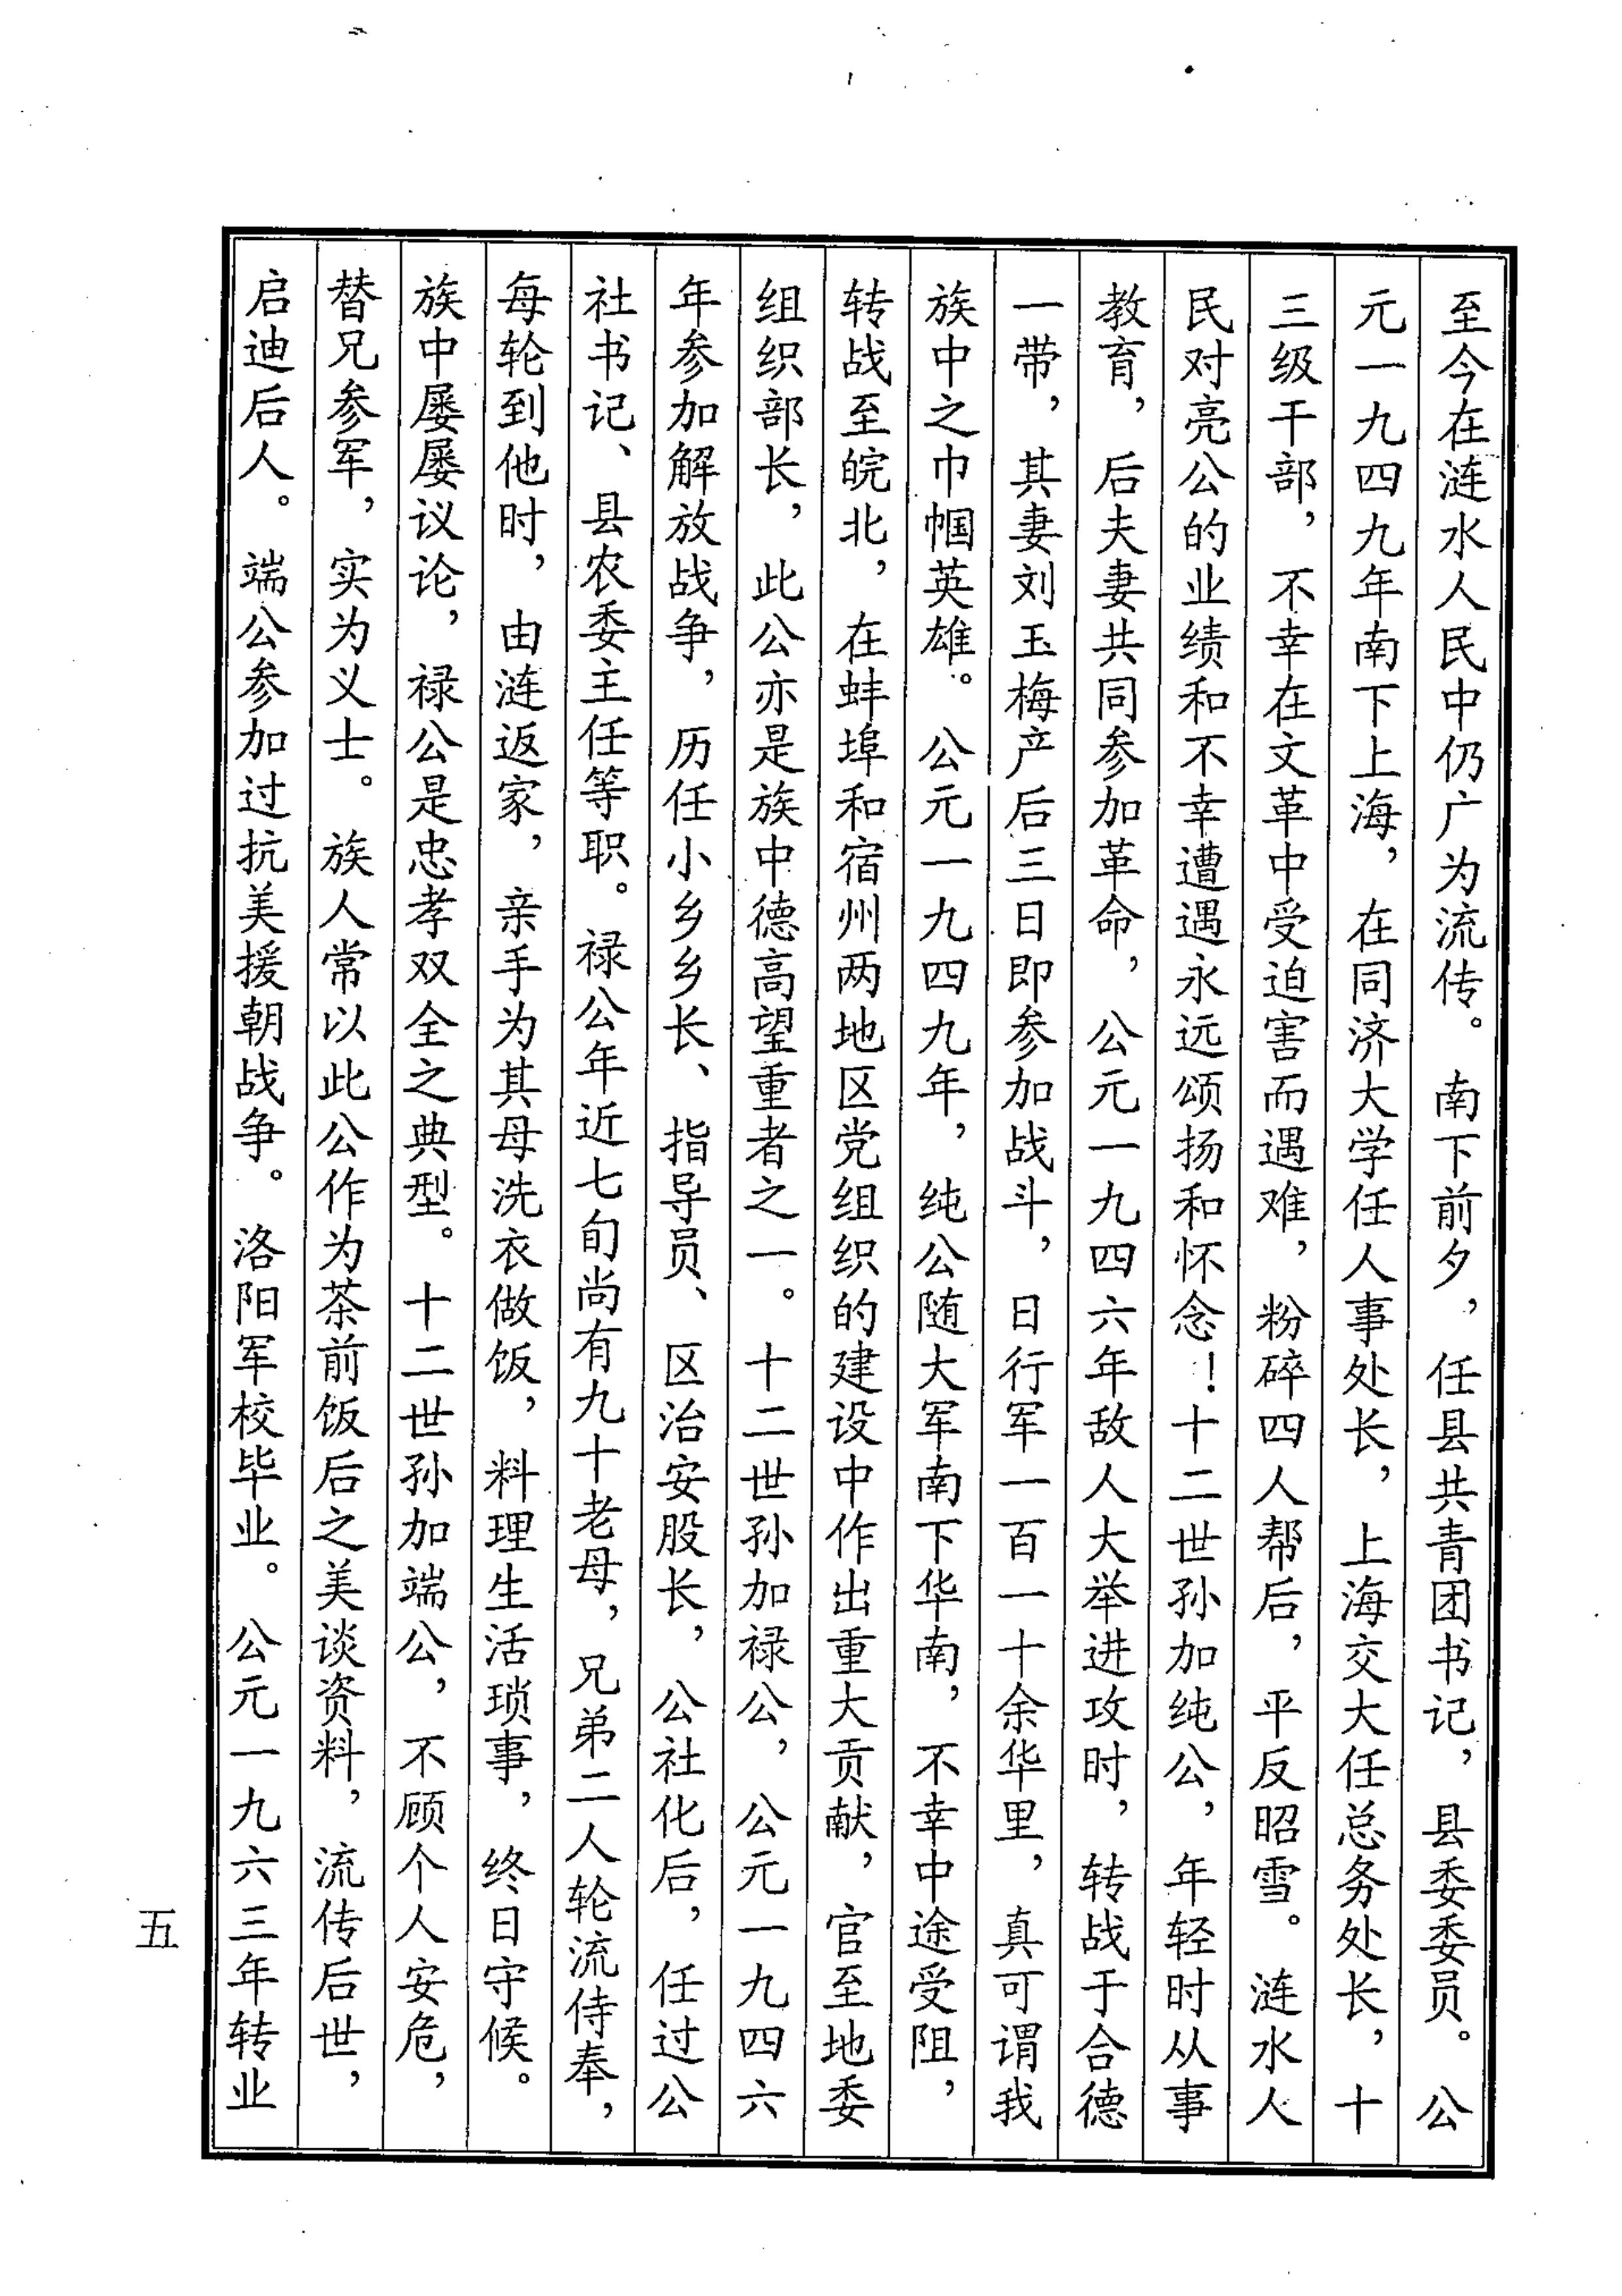 至今在涟水人民中仍广为流传。南下前夕，任县共青团书记，县委委员。公
元一九四九年南下上海，在同济大学任人事处长，上海交大任总务处长，十
三级干部，不幸在文革中受迫害而遇难，粉碎四人帮后，平反昭雪。涟水人
民对亮公的业绩和不幸遭遇永远颂扬和怀念！十二世孙加纯公，年轻时从事
教育，后夫妻共同参加革命，公元一九四六年敌人大举进攻时，转战于合德
一带，其妻刘玉梅产后三日即参加战斗，日行军一百一十余华里，真可谓我
族中之巾帼英雄。公元一九四九年，纯公随大军南下华南，不幸中途受阻，
转战至皖北，在蚌埠和宿州两地区党组织的建设中作出重大贡献，官至地委
组织部长，此公亦是族中德高望重者之一。十二世孙加禄公，公元一九四六
年参加解放战争，历任小乡乡长、指导员、区治安股长，公社化后，任过公
社书记、县农委主任等职。禄公年近七旬尚有九十老母，兄弟二人轮流侍奉，
每轮到他时，由涟返家，亲手为其母洗衣做饭，料理生活琐事，终日守候。
族中屡屡议论，禄公是忠孝双全之典型。十二世孙加端公，不顾个人安危，
替兄参军，实为义士。族人常以此公作为茶前饭后之美谈资料，流传后世，
启迪后人。端公参加过抗美援朝战争。洛阳军校毕业。公元一九六三年转业
五